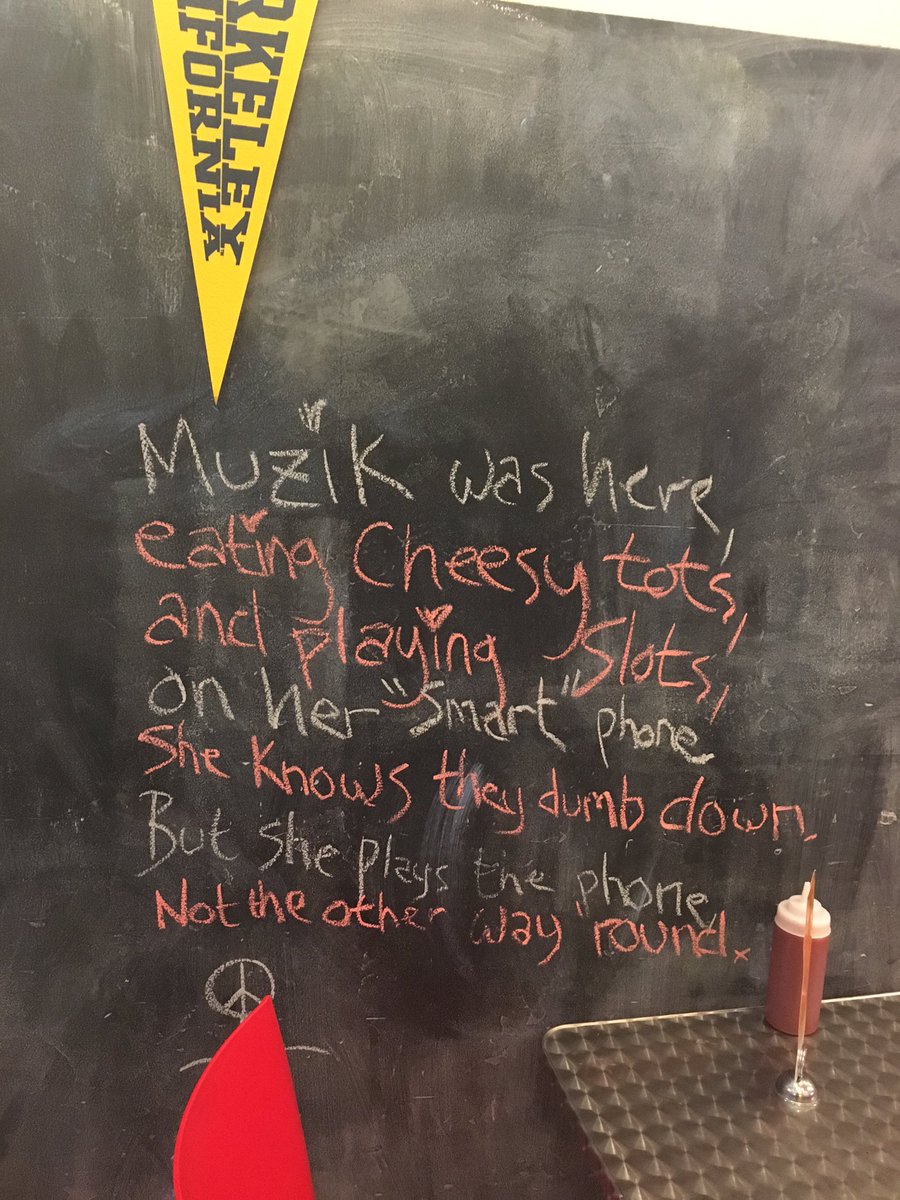 RKELEY
IFORNIA
Muzik was here,
eating Cheesy tots,
and playing Slots,
on her "Smart" phone
She knows they dumb down.
But she plays the phone,
Not the other way 'round.